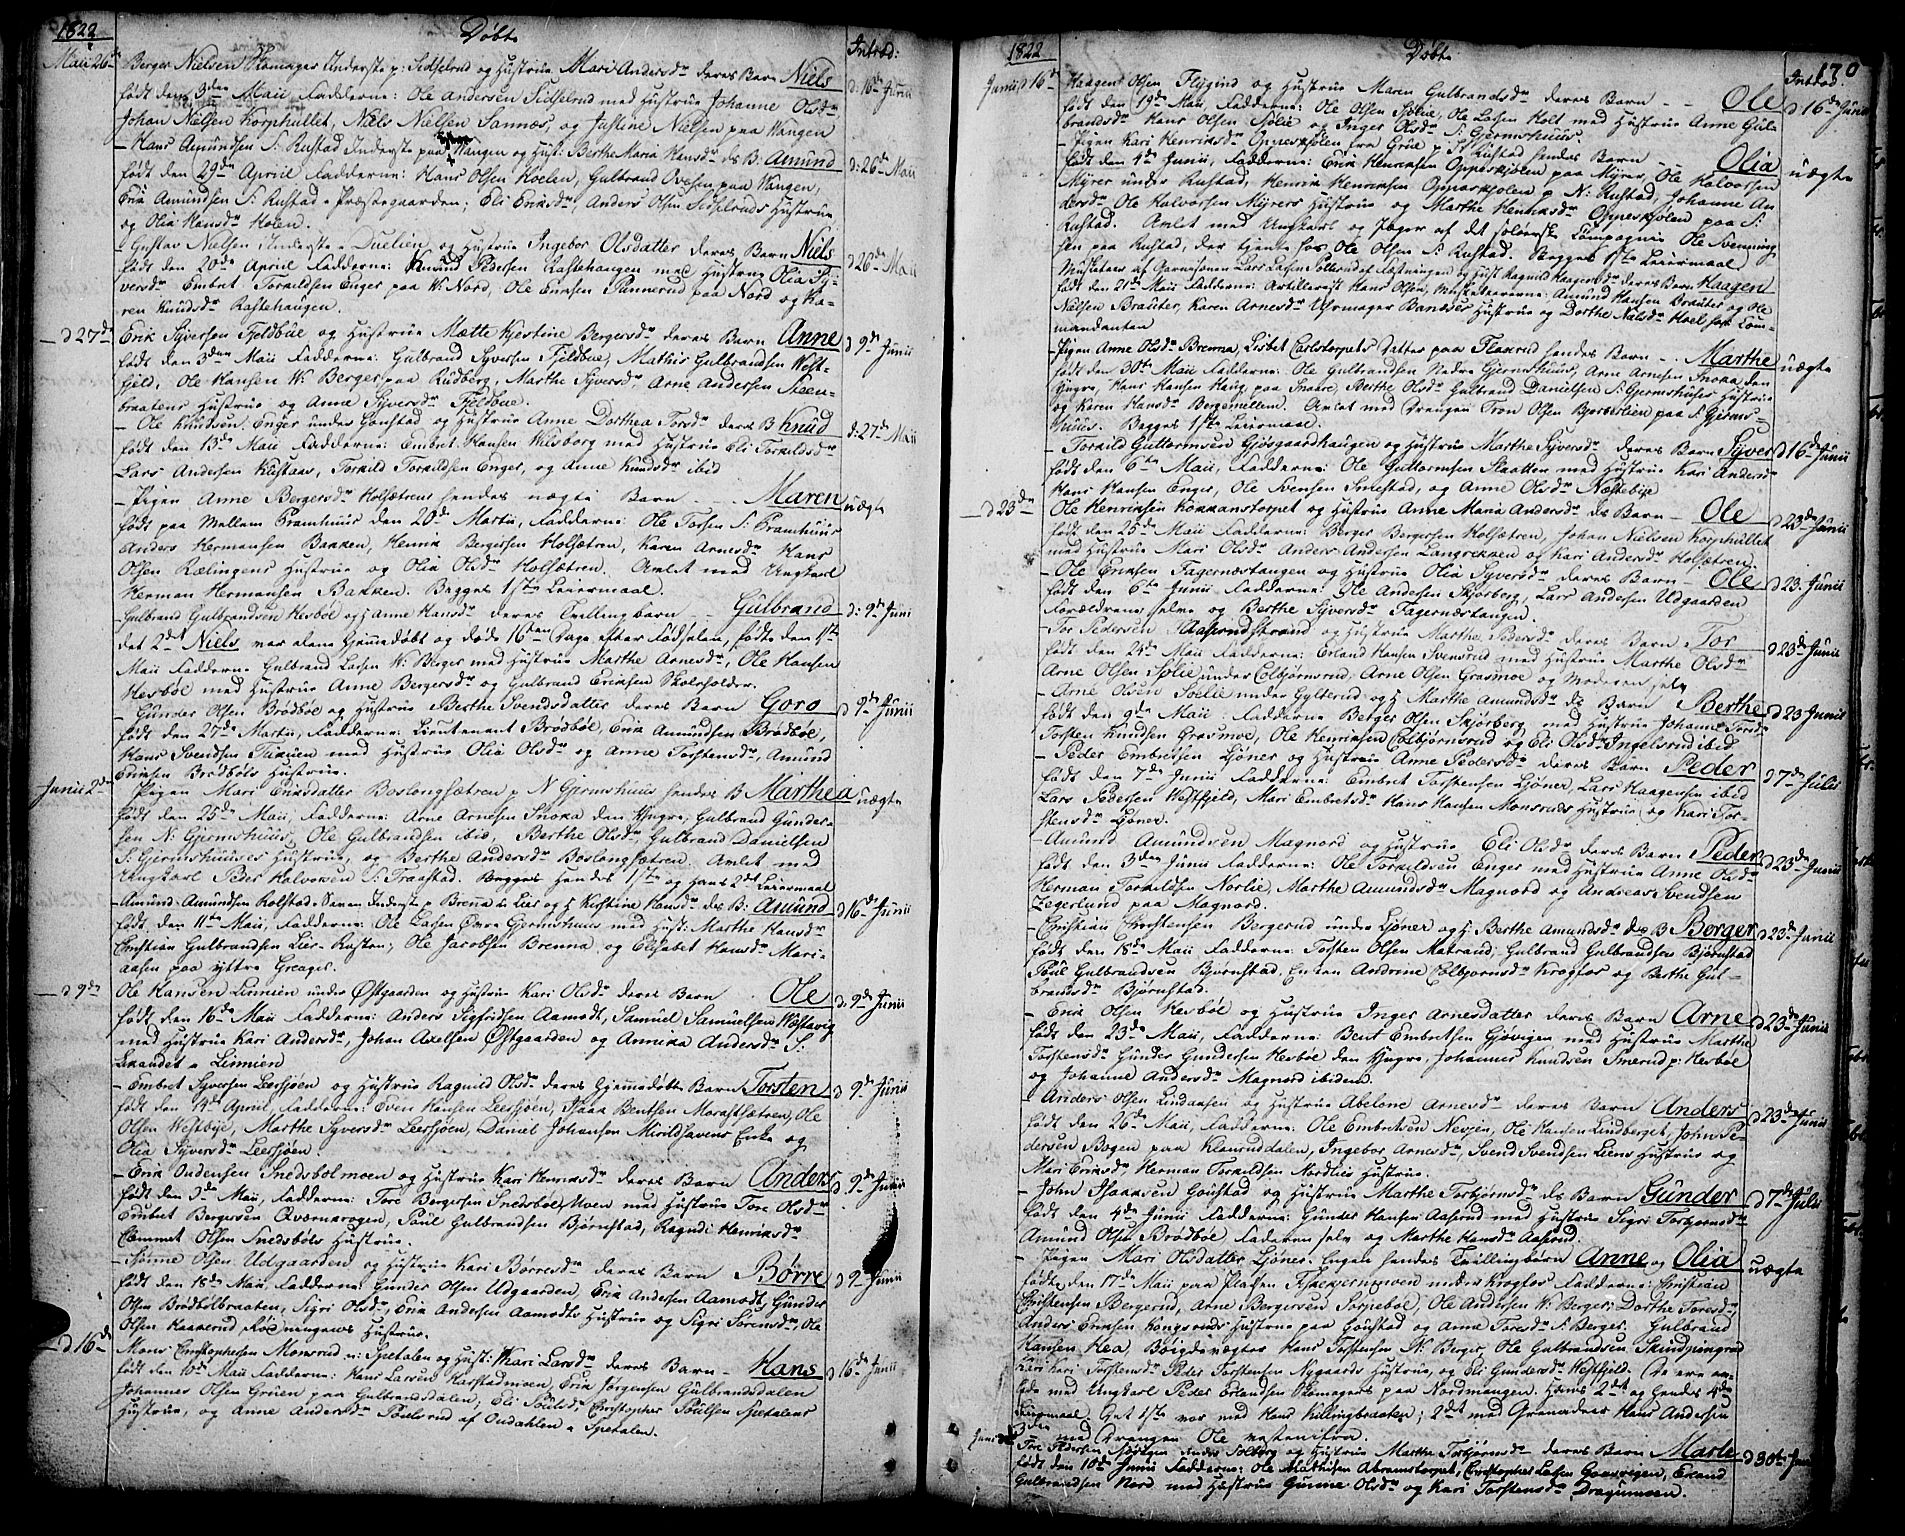 1822 Døbte Introd:
Maii 26de Berger Nielsen Skomager Inderste p: Sidselrud og Hustrue Mari Andersdr deres Barn Niels d: 16de Junii
født den 3den Maii Fadderne: Ole Andersen Sidselrud med Hustrue Johanne Olsdr
Johan Nielsen Korphullet, Niels Nielsen Sannæs, og Justine Nielsen paa Vangen
- Hans Amundsen S: Rustad Inderste paa Vangen og Hust: Berthe Maria Hansdr ds B: Amund d: 26de Maii
født den 29de April Fadderne: Hans Olsen Hoelen, Gulbrand Ovesen paa Vangen,
Erik Amundsen S: Rustad i Præstegaarden; Eli Eriksdr, Anders Olsen Sidselruds Hustrue
og Olia Hansdr Holen.
- Gustav Nielsen Inderste i Duelien og Hustrue Ingebor Olsdatter deres Barn Niels d 26de Maii
født den 20de April Fadderne: Knud Pedersen Rastehaugen med Hustrue Olia Sy-
versdr Embret Torkildsen Enger paa N: Nord, Ole Eriksen Pannerud paa Nord og Ka-
ren Knudsdr Rastehaugen.
d 27de Erik Syversen Fjeldbüe og Hustrue Mætte Kjerstine Bergersdr deres Barn Anne d 9de Junii
født den 3den Maii Fadderne: Gulbrand Syversen Fjeldbüe, Mathis Gulbrandsen West-
fjeld, Ole Hansen N: Berger paa Rudberg, Marthe Syversdr Arne Andersen Steen-
braatens Hustrue og Anne Syversdr Fjeldbüe.
- Ole Knudsen Enger under Goustad og Hustrue Anne Dorthea Torsdr ders B Knud d: 27de Maii
født den 13de Maii Fadderne: Embret Hansen Wisborg med Hustrue Eli Torkildsdr
Lars Andersen Kustaas, Torkild Torkildsen Enger, og Anne Knudsdr ibid
- Pigen Anne Bergersdr Holsætrens hendes uægte Barn Maren uægte
født paa Mellem Pramhuus den 20de Martii, Fadderne: Ole Torsen S: Pramhuus
Anders Hermansen Bakken, Henrik Bergersen Holsætren, Karen Arnesdr Hans
Olsen Rælingens Hustrue og Olia Olsdr Holsætren. Avlet med Ungkarl
Herman Hermansen Bakken. Begges 1ste Leiermaal.
Gulbrand Gulbrandsen Hesböe og H Anne Hansdr deres Tvillingbarn - Gulbrand d: 9de Juni
det 2det Niels var alene Hiemedøbt og døde 16ten Dage efter Fødselen, fødte den 1ste
Maii Fadderne Gulbrand Larsen N: Berger med Hustrue Marthe Arnesdr, Ole Hansen
Hesböe med Hustrue Anne Bergersdr og Gulbrand Eriksen Skoleholder.
- Gunder Olsen Brødböe og Hustrue Berthe Svendsdatter deres Barn Goro d 9de Junii
født den 27de Martii, Fadderne: Lieutenant Brødböe, Erik Amundsen Brødböe,
Hans Svendsen med Hustrue Olia Olsdr og Anne Torstensdr, Amund
Eriksen Brødböls Hustrue.
Junii 2de - Pigen Mari Eriksdatter Boslongsætren p N Gjermshuus hendes B Marthea uægte
født den 25de Maii, Fadderne: Arne Arnesen Snoka den Yngre, Gulbrand Gunder-
sen N: Gjermshuus, Ole Gulbrandsen ibid, Berthe Olsdr, Gulbrand Danielsen
S: Gjermshuuses Hustrue, og Berthe Andersdr Boslongsætren. Avlet med
Ungkarl Peder Halvorsen S. Traastad. Begges Hendes 1ste og Hans 2det Leiermaal
Amund Amundsen Holstad Inderst p Brena i Lier og H Kirstine Hansdr ds B: Amund d 16de Junii
født den 11te Maii, Fadderne: Ole Larsen Øvre Gjermshuus med Hust: Marthe Hansdr
Christian Gulbrandsen Lier-Rasten; Ole Jacobsen Brenna, og Elisabet Hansdr Mari-
aasen paa yttre Greager.
d 9de Ole Hansen Linnien under Østgaarden og Hustrue Kari Olsdr deres Barn Ole d: 9de Junii
født den 16de Maii Fadderne: Anders Sigfridsen Aamodt, Samuel Samuelsen Wæstavig
med Hustrue Kari Andersdr, Johan Axelsen Østgaarden og Annika Andersdr S:
Skandet i Linnien
- Embret Syversen Leersjøen og Hustrue Ragnild Olsdr deres Hjemmedøbte Barn Torsten d 9de Junii
født den 14de April, Fadderne: Even Hansen Leersjøen, Isaak Bentsen Morastsætren, Ole
Olsen Westbye, Marthe Syversdr Leersjøen, Daniel Johansen Mirildhavens Enke og
Olia Syversdr Leersjøen.
- Erik Oudensen Snedsbolmoen og Hustrue Kari Henriksdr deres Barn Anders d 9de Junii
født den 5de Maii, Fadderne: Tor Borgersen Snedsböl Moen med Hustrue Tore Olsdr
Embret Bergersen Qværnkrogen, Poul Gulbrandsen Bjørnstad, Ragndi Henriksdr
Clemmet Olsen Snedsböls Hustrue.
- Simme Olsen Udgaarden og Hustrue Kari Børresdr deres Barn Børre d 9de Junii
født den 18de Maii, Fadderne: Gunder Olsen Udgaarden, Erik Andersen Aamodt, Gunder
Olsen Brødbølbraaten, Sigri Olsdr, Erik Andersen Aamodts Hustrue og Sigri Sorensdr, Ole
Olsen Kaakerud Hustrue.
d 16de Mons Christophersen Monsrud i Spetalen og Hust: Kari Larsdr deres Barn - Hans d 16de Junii
født den 10de Maii Fadderne: Hans Larsen Karstedmoen, Erik Jørgensen Gulbrandsdalen
Johannes Olsen Gruen paa Gulbrandsdalen; Eli Poulsdr, Christopher Poulsen Spetalens
Hustrue, og Anne Andersdr Poulsrud af Oudahlen i Spetalen.
1822 Døbte Introd 170
Junii d 16de Haagen Olsen Flygind og Hustrue Maren Gulbrandsdr deres Barn - - Ole d 16de Junii
født den 19de Mai, Fadderne: Ole Olsen Sølie, Ole Larsen Holt med Hustrue Anne Gul-
brandsdr Hans Olsen Sølie og Inger Olsdr S: Gjermshuus.
- Pigen Kari Henriksdr Oppeskjølen fra Grue p S: Rustad hendes Barn - Olia uægte
født den 4de Junii, Fadderne: Erik Henriksen Oppeskjølen paa Myrer, Ole Halvorsen
Myrer under Rustad, Henrik Henriksen Oppeskjølen p N: Rustad, Johanne An-
dersdr Ole Halvorsen Myrers Hustrue og Marthe Henriksdr Oppeskjølen paa S:
Rustad. Avlet med Ungkarl og Jæger af det solørske Compagnie Ole Svenning-
sen paa Rustad, der tjente hos Ole Olsen S: Rustad. Begges 1ste Leiermaal
Musketeer af Garnisonen Lars Larsen Pollerud af Fæstningen og Hust Ragnild Haagensdr deres Barn Haagen
født den 21de Maii Fadderne: Artillerist Hans Olsen, Musketererne: Amund Hansen Brauter og Ole
Nielsen Brauter, Karen Arnesdr Uhrmager Bandses Hustrue og Dorthe Nilsdr Hoel hos Com-
mandanten
- Pigen Anne Olsdr Brenna, Lisbet Carlstorpets Datter paa Flaxrud hendes Barn - - Marthe uægte
født den 30te Maii Fadderne: Ole Gulbrandsen Nedre Gjermshuus, Arne Arnesen Snoka den
Yngre, Hans Hansen Haug paa Snokre, Berthe Olsdr Gulbrand Danielsen S: Gjermshuses Hustrue
og Karen Hansdr Bergemellem. Avlet med Drengen Tron Olsen Bjørbekkien paa S: Gjerms-
huus. Begges 1ste Leiermaal.
- Torkild Guttormsen Gjøsgaardhaugen og Hustrue Marthe Syversdr deres Barn Syver d 16de Junii
født den 6te Maii, Fadderne: Ole Guttormsen Slaatten med Hustrue Kari Andersdr
Hans Hansen Enger, Ole Svensen Sinestad, og Anne Olsdr Næstebye
d 23de Ole Henriksen Kokkanstorpet og Hustrue Anne Maria Andersdr ds Barn - Ole d 23de Junii
født den 25de Maii, Fadderne: Berger Bergersen Holsætren, Johan Nielsen Korphullet
med Hustrue Mari Olsdr Anders Andersen Langrekken og Kari Andersdr Holsætren.
- Ole Eriksen Fagernæstangen og Hustrue Olia Syversdr deres Barn - Ole d 23. Junii
født den 6te Junii, Fadderne: Ole Andersen Skjørberg, Lars Andersen Udgaarden
Forældrene selve og Berthe Syversdr Fagernæstangen.
- Tor Pedersen Aaserudstrand og Hustrue Marthe Ibersdr deres Barn Tor d 23de Junii
født den 24de Maii Fadderne: Erland Hansen Svensrud med Hustrue Marthe Olsdr
Arne Olsen Sølie under Colbjørnsrud, Arne Olsen Grasmoe og Moderen selv
- Arne Olsen Soelie under Gylterud og H Marthe Amundsdr ds Barn Berthe d 23 Junii
født den 9de Maii: Fadderne Berger Olsen Skjørberg med Hustrue Johanne Torsdr
Torsten Knudsen Grasmoe, Ole Henriksen Colbjørnsrud og Eli Olsdr Ingelsrud ibid
- Peder Embretsen Sjöner og Hustrue Anne Pedersdr deres Barn Peder d 7de Julii
født den 7de Junii Fadderne: Embret Torstensen Sjöner, Lars Haagensen ibid
Lars Pedersen Westfjeld, Mari Embretsdr Hans Hansen Monsruds Hustrue og Kari Tor-
stensdr Sjöner.
- Amund Amundsen Magnord og Hustrue Eli Olsdr deres Barn Peder d 23de Junii
født den 3den Junii Fadderne: Ole Torkildsen Enger med Hustrue Anne Olsdr
Herman Torkildsen Norlie, Marthe Amundsdr Magnord og Andreas Svendsen
Zegerlund paa Magnord.
- Christian Christensen Bergerud under Sjöner og H: Berthe Amundsdr ds B Berger d 23de Junii
født den 18de Maii Fadderne: Torsten Olsen Matrand, Gulbrand Gulbrandsen Bjørnstad
Poul Gulbrandsen Bjørnstad, Enken Andrine Colbjørnsdr Krogfos og Berthe Gul-
brandsdr Bjørnstad.
- Erik Olsen Hesböe og Hustrue Inger Arnesdatter deres Barn Arne d 23de Junii
født den 23de Maii, Fadderne: Bent Embretsen Gjøvigen med Hustrue Marthe
Torstensdr Gunder Gundersen Hesböe den Yngre, Johannes Knudsen Smerud p: Hesböe
og Johanne Andersdr Magnord ibidem.
- Anders Olsen Lindaasen og Hustrue Abelone Arnesdr deres Barn Anders d 23de Junii
født den 26de Maii, Fadderne: Ole Embretsen Nevjen, Ole Hansen Lindberget, John Pe-
dersen Bogen paa Klanrudalen, Ingebor Arnesdr, Svend Svendsen Liens Hustrue og
Mari Eriksdr Herman Torkildsen Nordlies Hustrue.
- John Isaaksen Goustad og Hustrue Marthe Torbjørnsdr ds Barn Gunder d 7de Julii
født den 4de Junii Fadderne: Gunder Hansen Aaserud med Hustrue Sigri Torbjørnsdr
Amund Olsen Brødböe Faderen selv og Marthe Hansdr Aaserud.
- Pigen Mari Olsdatter Sjöner-Engen hendes Tvillingbørn Anne og Olia uægte
fødte den 17de Maii paa Pladsen under Krogfos Fadderne: Christian
Christensen Bergerud, Arne Bergersen Torpeböe, Ole Andersen N: Berger, Dorthe Toresdr,
Anders Eriksen Kongsruds Hustrue paa Goustad og Anne Toresdr S: Berger. Gulbrand
Hansen Hea, Bøigdevægter Hans Torstensen N: Berger, Ole Gulbrandsen Skindpungrud
Kari Torstensdr Peder Torstensen Nygaards Hustrue, og Eli Gundersdr Westfjeld. De ere av-
lede med Ungkarl Peder Erlandsen Skomagers paa Nordmangen. Hans 2det og hendes 4de
Leiermaal. Det 1ste var med Hans Killingbraaten; 2det med Grenadeer Hans Andersen
3die med Drengen Ole
Junii Tore Pedersen under Solberg og Hustrue Marthe Torbjørnsdr deres Barn Marte d 30te Junii
født den 10de Junii Fadderne: Ole Mathisen Abramstorpet, Christopher Larsen Erland
Gulbrandsen Nord med Hustrue Gunne Olsdr og Kari Torstensdr Dragumoen.